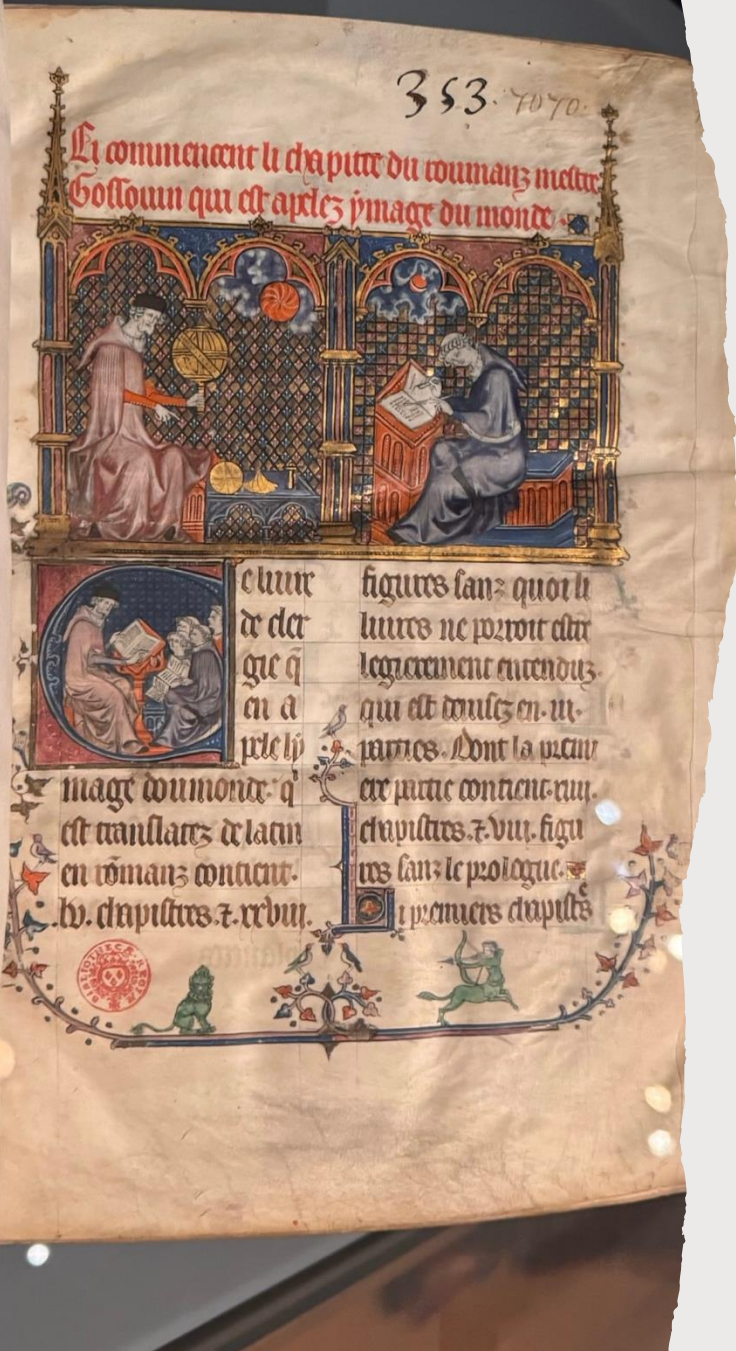 353. 7070.
Ci commencent li chapitre du roumanz mestre
Gossouin qui est apelez ymage du monde
Ce liure
de cler
gie q̃
en a
pele ly
mage dou monde. q'
est translatez de latin
en rõmanz contient.
lv. chapistres. ⁊. xxviii.
figures sanz quoi li
liures ne porroit estre
legierement entenduz.
qui est deuisez en. iii.
parties. Dont la premi
ere partie contient. xiiii.
chapistres. ⁊. viii. figu
res sanz le prologue.
Li premiers chapistẽs
BIBLIOTHECA REGIA